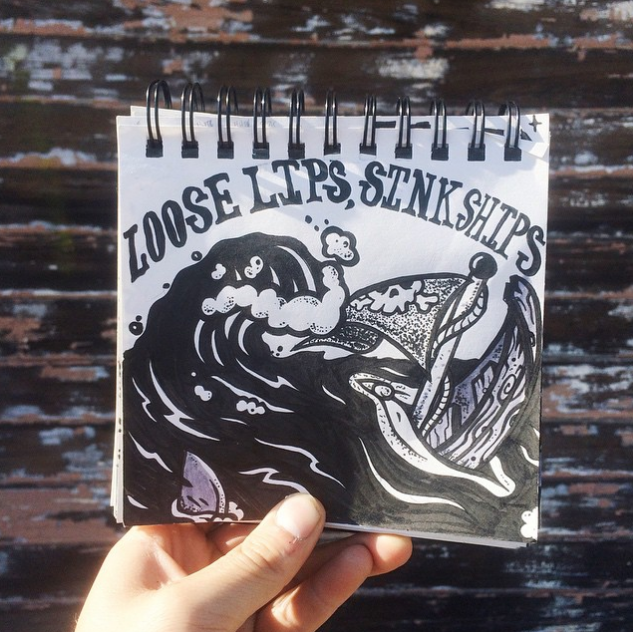 LOOSE LIPS, SINK SHIPS